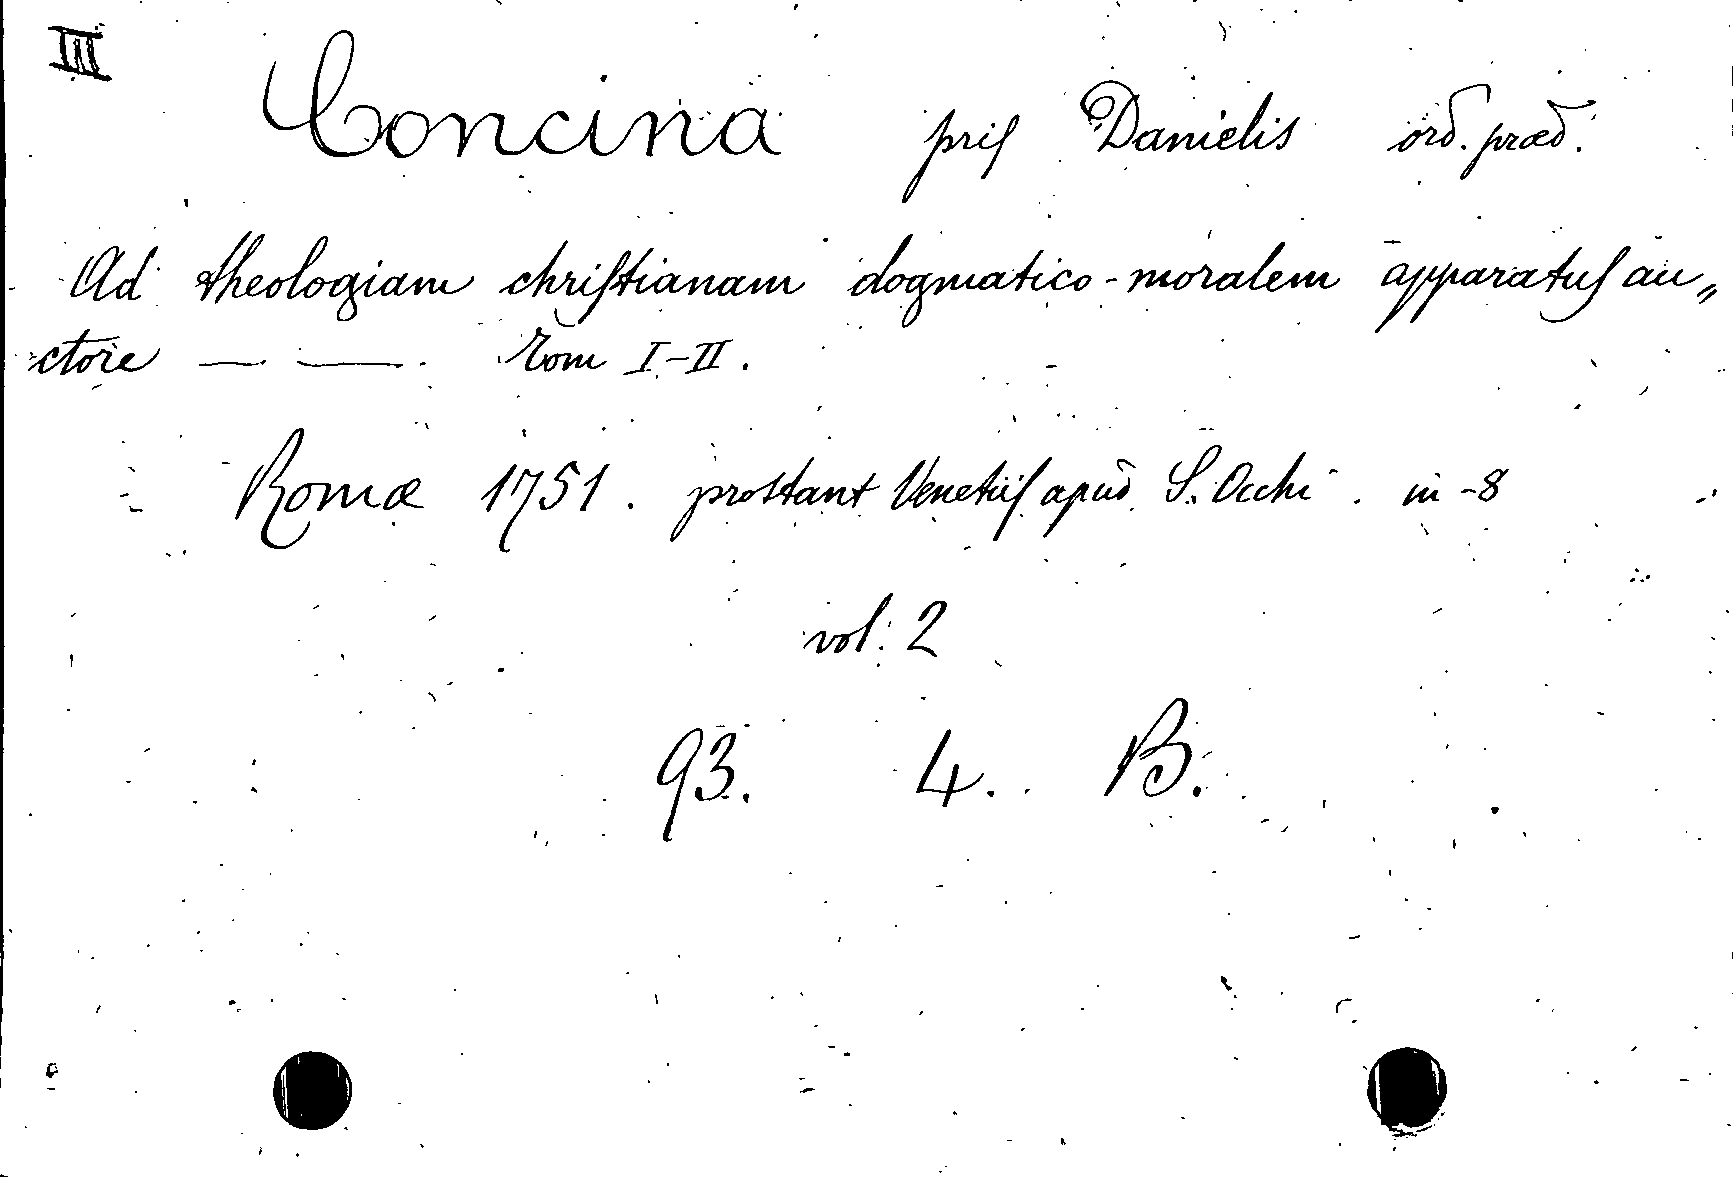 III
Concina pris Danielis ord. præd.
Ad theologiam christianam dogmatico-moralem apparatus au„
ctore — — . Tom I-II.
Romæ 1751. prostant Venetiis apud S. Occhi. in-8
vol: 2
93. 4. B.